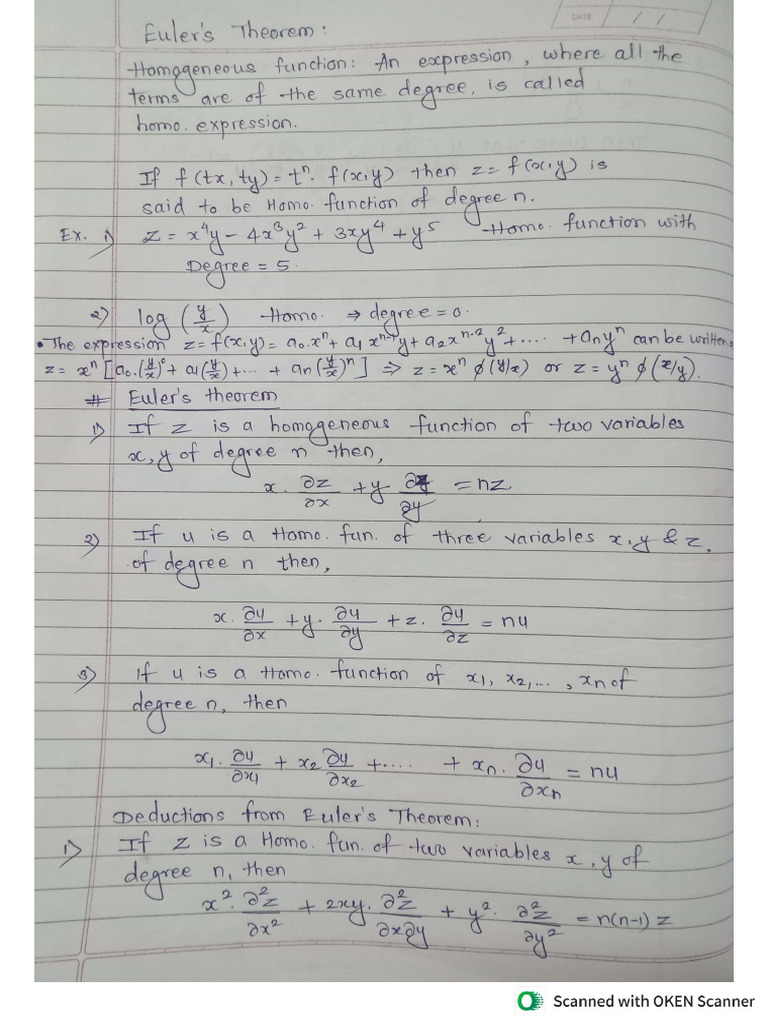 DATE / /
Euler's Theorem:
Homogeneous function: An expression, where all the
terms are of the same degree, is called
homo. expression.
If f(tx, ty) = tⁿ. f(x,y) then z = f(x,y) is
said to be Homo. function of degree n.
Ex. 1) z = x⁴y - 4x³y² + 3xy⁴ + y⁵ Homo. function with
Degree = 5.
2) log (y/x) Homo. ⇒ degree = 0.
• The expression z = f(x,y) = a₀.xⁿ + a₁ xⁿ⁻¹y + a₂xⁿ⁻²y² + .... + aₙyⁿ can be written,
z = xⁿ [a₀.(y/x)⁰ + a₁(y/x) + ... + aₙ(y/x)ⁿ] ⇒ z = xⁿ ϕ(y/x) or z = yⁿ ϕ(x/y).
# Euler's theorem
1) If z is a homogeneous function of two variables
x, y of degree n then,
x. ∂z/∂x + y ∂z/∂y = nz
2) If u is a Homo. fun. of three variables x, y & z.
of degree n then,
x. ∂u/∂x + y. ∂u/∂y + z. ∂u/∂z = nu
3) If u is a Homo. function of x₁, x₂,..., xₙ of
degree n, then
x₁. ∂u/∂x₁ + x₂ ∂u/∂x₂ + .... + xₙ. ∂u/∂xₙ = nu
Deductions from Euler's Theorem:
1) If z is a Homo. fun. of two variables x, y of
degree n, then
x². ∂²z/∂x² + 2xy. ∂²z/∂x∂y + y². ∂²z/∂y² = n(n-1) z
Scanned with OKEN Scanner